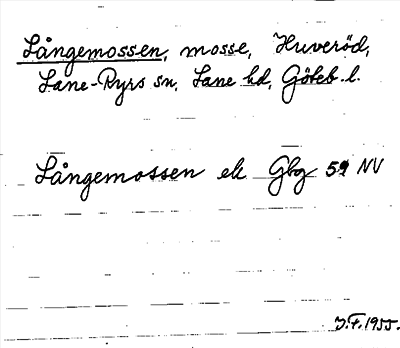 Långemossen, mosse, Huveröd,
Lane-Ryrs sn, Lane hd, Göteb. l.
Långemossen ek Gbg 59 NV
J.F. 1955.